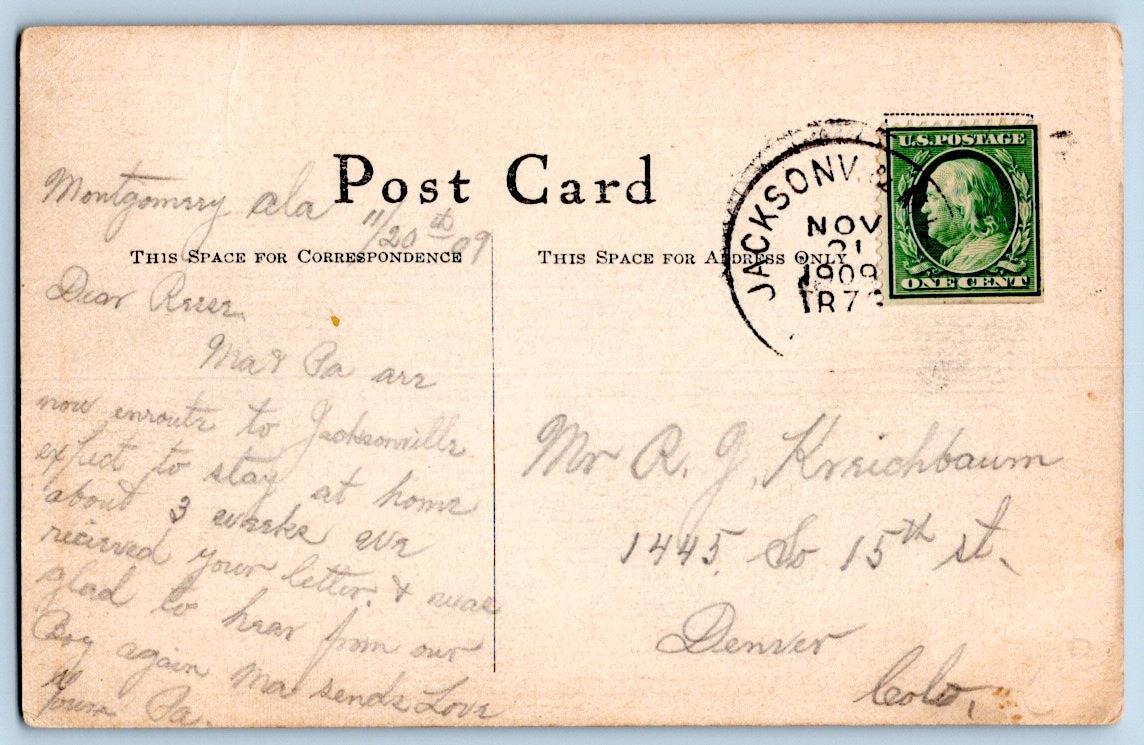 Post Card
THIS SPACE FOR CORRESPONDENCE
Montgomery Ala
11/20th 09
Dear Reese
Ma & Pa are
now enroute to Jacksonville
expect to stay at home
about 3 weeks We
recieved your letter. & was
glad to hear from our
Boy again Ma sends Love
Yours Pa.
THIS SPACE FOR ADDRESS ONLY
JACKSONV
NOV
21
1909
U.S. POSTAGE
ONE CENT
Mr R. J. Kreichbaum
1445 So 15th st.
Denver
Colo.